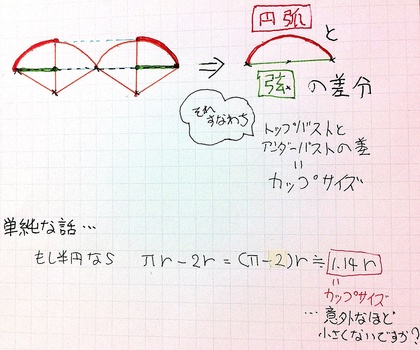 ⇒ 円弧 と
弦 の差分
それ
すなわち
トップバストと
アンダーバストの差
=
カップサイズ
単純な話…
もし半円なら πr-2r=(π-2)r≒1.14r
=
カップサイズ
…意外なほど
小さくないですか?